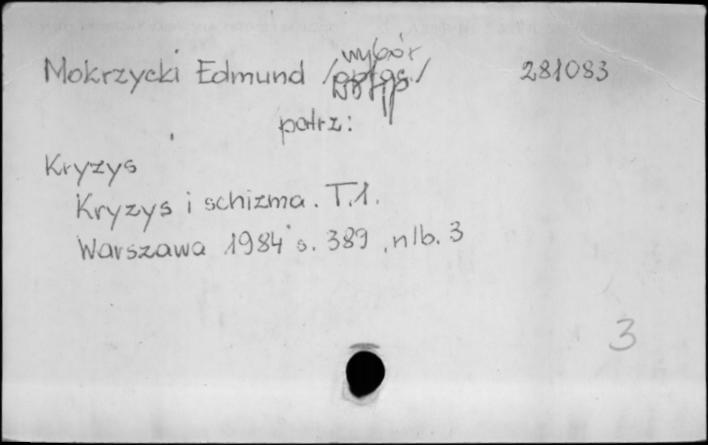 wybór
Mokrzycki Edmund / / 281083
patrz:
Kryzys
Kryzys i schizma. T.1.
Warszawa 1984 s. 389, nlb. 3
3